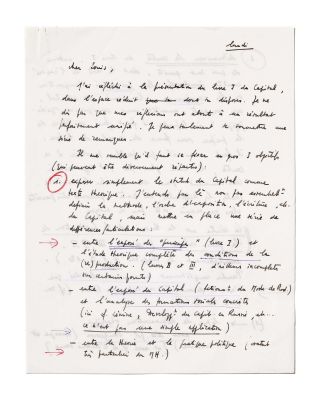 lundi
cher Louis,
J'ai réfléchi à la présentation du livre I du Capital,
dans l'espace réduit dont tu disposes. Je ne
dis pas que mes réflexions ont abouti à un résultat
parfaitement unifié. Je peux seulement te soumettre une
série de remarques.
Il me semble qu'il faut se fixer en gros 3 objectifs
(qui peuvent être diversement répartis):
1. exposer simplement le statut du Capital comme
texte théorique. J'entends par là non pas
définir la méthode, l'ordre d'exposition, etc.
du Capital, mais mettre en place une série de
différences/articulations:
- entre l'exposé du "principe" (livre I) et
l'étude théorique complète des conditions de la
(re)production. (livres II et III, d'ailleurs incomplets
en certains points)
- entre l'exposé du Capital ( du Mode de Prod.)
et l'analyse des formations sociales concrètes
(ici cf. Lénine, "Développt du Capit. en Russie, etc...
ce n'est pas une simple application)
- entre la théorie et la pratique politique (statut
très particulier du MH.)